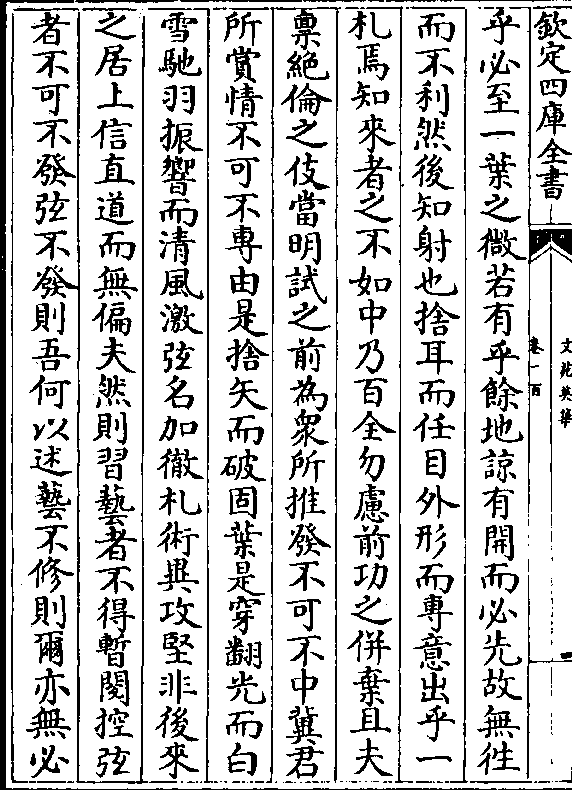 欽定四庫全書
文苑英華
卷一百
乎必至一葉之微若有乎餘地諒有開而必先故無徃
而不利然後知射也捨耳而任目外形而專意出乎一
札焉知來者之不如中乃百全勿慮前功之併棄且夫
禀絶倫之伎當明試之前為衆所推發不可不中冀君
所賞情不可不專由是捨矢而破固葉是穿翻光而白
雪馳羽振響而清風激弦名加徹札術與攻堅非後來
之居上信直道而無偏夫然則習藝者不得暫閡控弦
者不可不發弦不發則吾何以述藝不修則爾亦無必